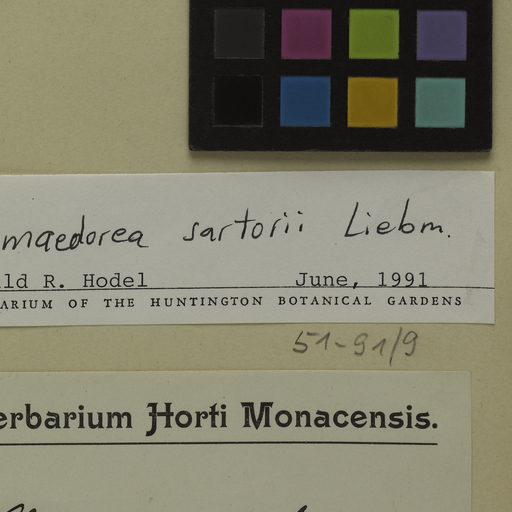 maedorea sartorii Liebm.
ld R. Hodel June, 1991
ARIUM OF THE HUNTINGTON BOTANICAL GARDENS
51-91/9
erbarium Horti Monacensis.